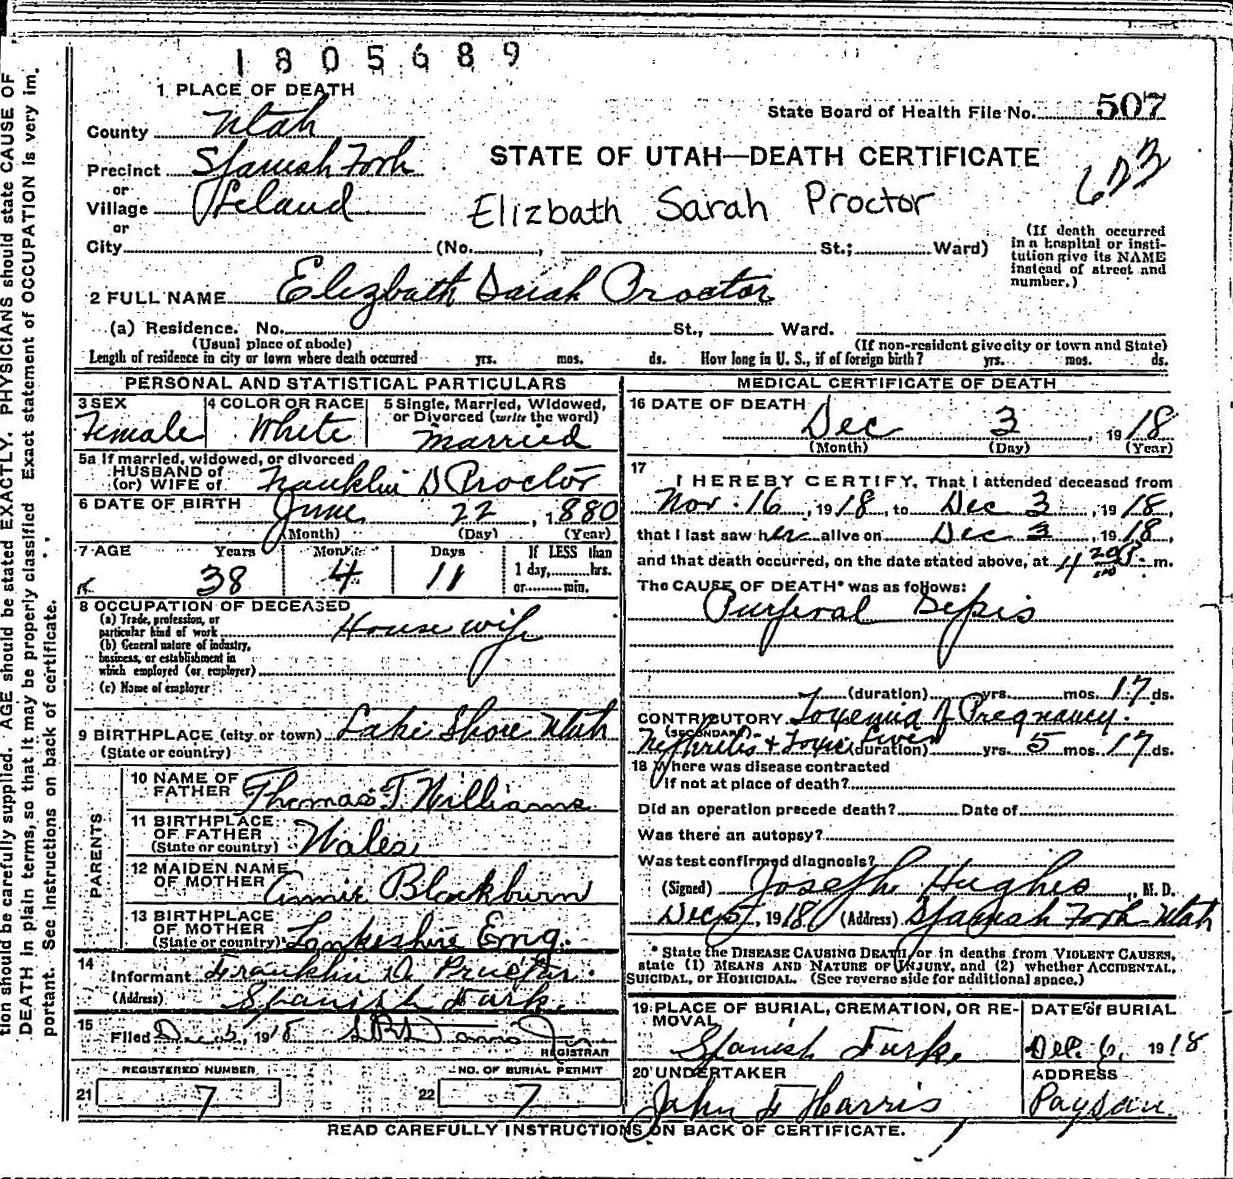 1805689
1 PLACE OF DEATH
State Board of Health File No. 507
County Utah
STATE OF UTAH—DEATH CERTIFICATE
Precinct Spanish Fork
or
Village Leland
Elizbath Sarah Proctor
or
City (No. , St.; Ward)
(If death occurred
in a hospital or insti-
tution give its NAME
instead of street and
number.)
2 FULL NAME Elizbath Sarah Proctor
(a) Residence. No. St., Ward.
(Usual place of abode) (If non-resident give city or town and State)
Length of residence in city or town where death occurred yrs. mos. ds. How long in U. S., if of foreign birth? yrs. mos. ds.
PERSONAL AND STATISTICAL PARTICULARS
3 SEX
Female
4 COLOR OR RACE
White
5 Single, Married, Widowed,
or Divorced (write the word)
Married
5a If married, widowed, or divorced
HUSBAND of
(or) WIFE of Franklin D Proctor
6 DATE OF BIRTH
June 22, 1880
(Month) (Day) (Year)
7 AGE Years Months Days If LESS than
38 4 11 1 day, hrs.
or min.
8 OCCUPATION OF DECEASED
(a) Trade, profession, or
particular kind of work House wife
(b) General nature of industry,
business, or establishment in
which employed (or employer)
(c) Name of employer
9 BIRTHPLACE (city or town) Lake Shore Utah
(State or country)
PARENTS
10 NAME OF
FATHER Thomas T. Williams
11 BIRTHPLACE
OF FATHER
(State or country) Wales
12 MAIDEN NAME
OF MOTHER Annie Blackburn
13 BIRTHPLACE
OF MOTHER
(State or country) Lankeshire Emg.
14
Informant Franklin D. Proctor.
(Address) Spanish Fark.
15
Filed Dec 5, 1918
REGISTRAR
REGISTERED NUMBER NO. OF BURIAL PERMIT
21 7 22 7
MEDICAL CERTIFICATE OF DEATH
16 DATE OF DEATH
Dec 3, 1918
(Month) (Day) (Year)
17
I HEREBY CERTIFY, That I attended deceased from
Nov. 16, 1918, to Dec 3, 1918,
that I last saw her alive on Dec 3, 1918,
and that death occurred, on the date stated above, at 4 20 P. m.
The CAUSE OF DEATH* was as follows:
Purperal Sepsis
(duration) yrs. mos. 17 ds.
CONTRIBUTORY Toxemia of Pregnancy.
(SECONDARY)
Nephritis & Toxic Liver (duration) yrs. 5 mos. 17 ds.
18 Where was disease contracted
If not at place of death?
Did an operation precede death? Date of
Was there an autopsy?
Was test confirmed diagnosis?
(Signed) Joseph Hughes, M. D.
Dec 5, 1918 (Address) Spanish Fork Utah
* State the DISEASE CAUSING DEATH, or in deaths from VIOLENT CAUSES,
state (1) MEANS AND NATURE OF INJURY, and (2) whether ACCIDENTAL,
SUICIDAL, or HOMICIDAL. (See reverse side for additional space.)
19 PLACE OF BURIAL, CREMATION, OR RE-
MOVAL
Spanish Furk.
DATE of BURIAL
Dec. 6, 1918
20 UNDERTAKER
John F Harris
ADDRESS
Payson.
READ CAREFULLY INSTRUCTIONS ON BACK OF CERTIFICATE.
tion should be carefully supplied. AGE should be stated EXACTLY. PHYSICIANS should state CAUSE OF
DEATH in plain terms, so that it may be properly classified Exact statement of OCCUPATION is very im.
portant. See instructions on back of certificate.